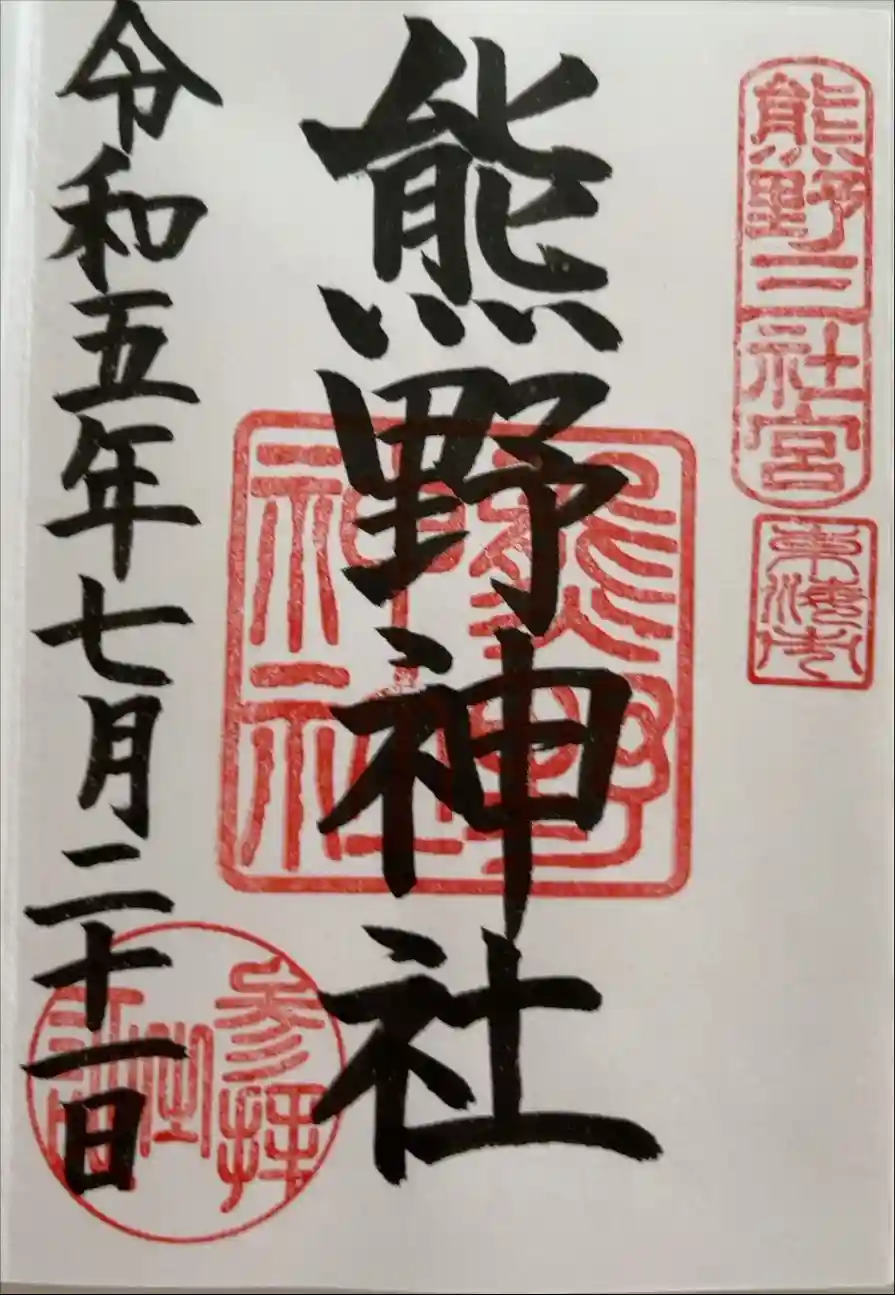 熊野三社宮
東海市
熊野神社
熊野神社
令和五年七月二十一日
参拝